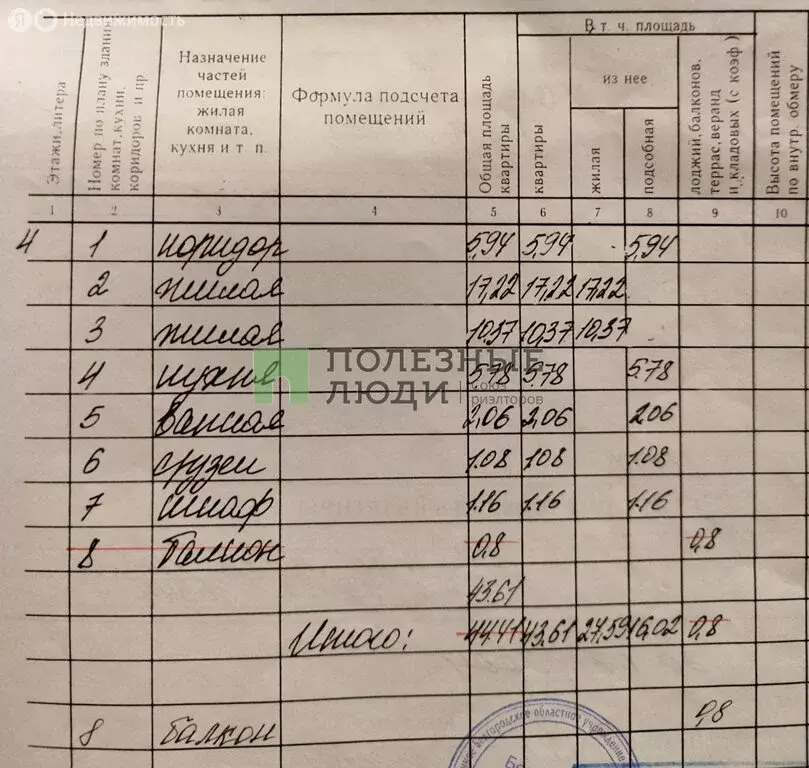 Я Недвижимость
Этажи, литера
Номер по плану здания комнат, кухни, коридоров и пр.
Назначение
частей
помещения:
жилая
комната,
кухня и т. п.
Формула подсчета
помещений
Общая площадь
квартиры
В т. ч. площадь
квартиры
из нее
жилая
подсобная
лоджий, балконов,
террас, веранд
и кладовых (с коэф)
Высота помещений
по внутр. обмеру
1 2 3 4 5 6 7 8 9 10
4 1 коридор 5,94 5,94 5,94
2 жилая 17,22 17,22 17,22
3 жилая 10,37 10,37 10,37
4 кухня 5.78 5.78 5.78
5 ванная 2,06 2,06 2,06
6 с/узел 1.08 1.08 1.08
7 шкаф 1.16 1.16 1.16
8 балкон 0,8 0,8
43.61
Итого: 44.41 43,61 27,59 16,02 0,8
8 балкон 0,8
ПОЛЕЗНЫЕ
ЛЮДИ
союз
риэлторов
Белгородское областное учреждение